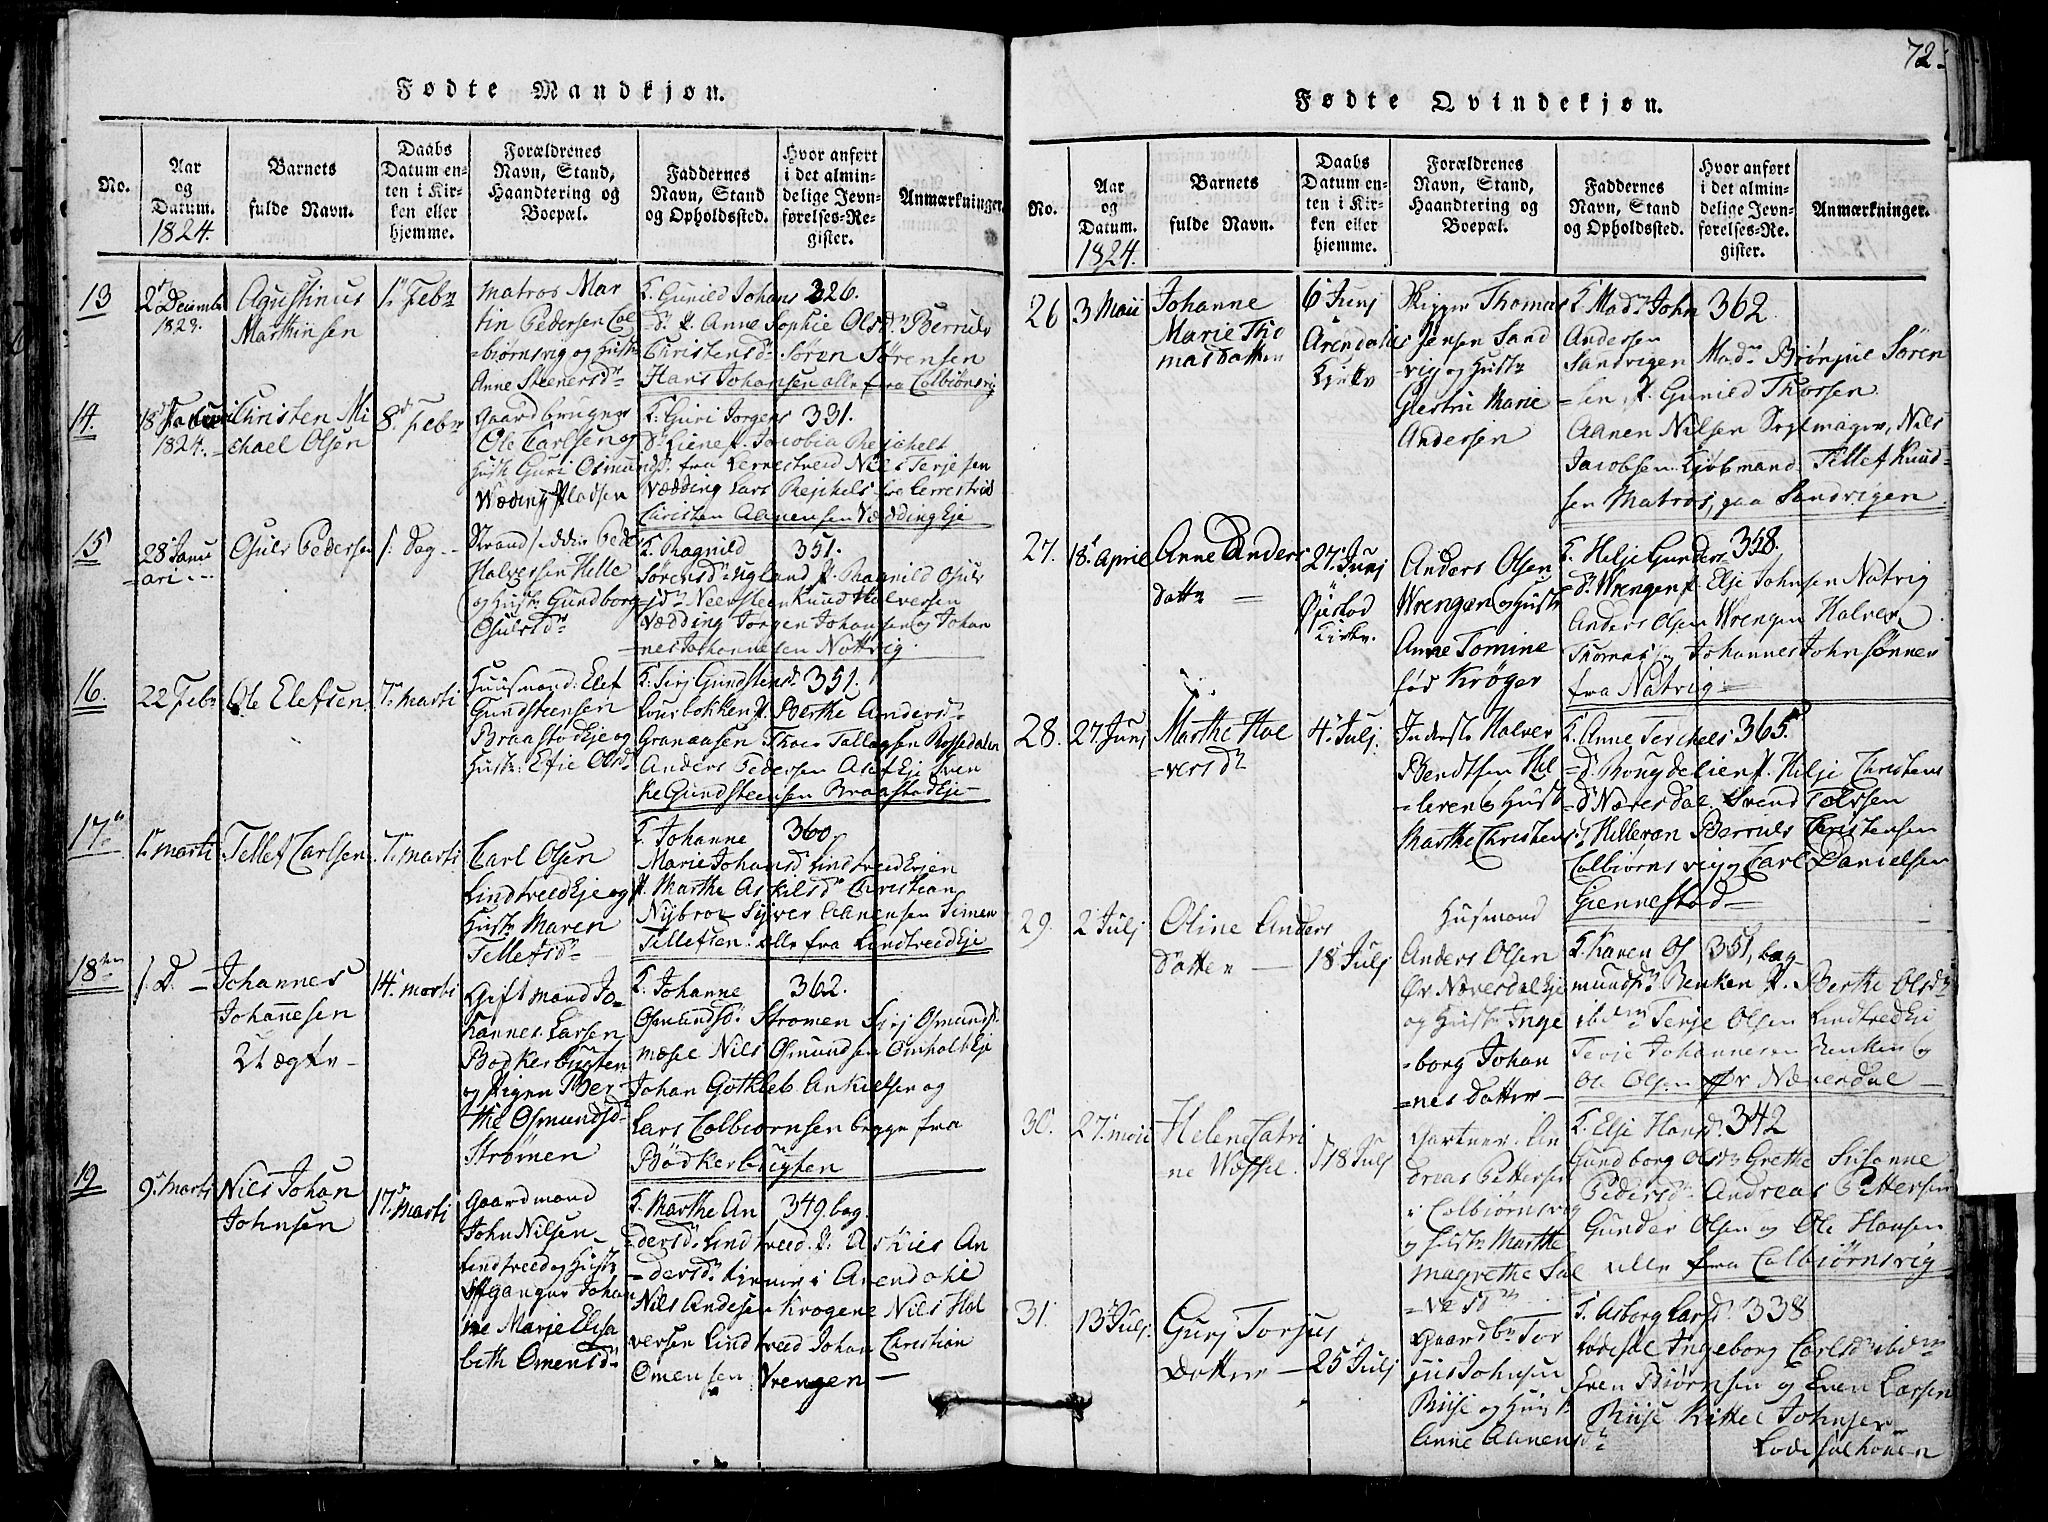 72.
Fødte Mandkjøn.
No.
Aar og Datum. 1824.
Barnets fulde Navn.
Daabs Datum enten i Kirken eller hjemme.
Forældrenes Navn, Stand, Haandtering og Boepæl.
Faddernes Navn, Stand og Opholdssted.
Hvor anført i det almindelige Jevnførelses-Register.
Anmærkninger.
13
2 Decembr
1823.
Agustinus
Marthinsen
1. Febr
Matros Mar
tin Pedersen Col
-biørnsvig og Hustr
Anne Steenersdr
F. Gunild Johans 326.
dr. P. Anne Sophie Olsdr Berruls
Christensdr Søren Sørensen
Hans Johansen alle fra Colbiønsvig
14.
18
1824.
Christen Mi
-chael Olsen
8. Febr
Gaardbruger
Ole Carlsen og
Hustr Guri Osmunds
Wæding Pladsen
F. Guri Jorgens 331.
fra Nels Terjesen
Vædding Lars
Christen Aanensen Vædding Eje
15
28 Janu
ari
Osuls Pedersen
s. Dag
Peder
Halversen Helle
og Hustr Gundborg
Osulsdr
F. Ragnild 351.
Sørensdr Ugland P. Ragnild Osuls
dr Neersteen Knud Halversen
Vædding Jorgen Johansen og Johan
nes Johannesen Nattvig
16.
22 Febr
Ole Elefsen
7. Marti
Huusmand: Elef
Gundsteensen
Braastad Eje og
Hustr: Efie Olsdr
F. Sirj Gundstensdr 351.
P. Berthe Andersdr
Granaasen Thoer Tallagsen Rossedalen
Anders Pedersen Asef Eje Sven
ke Gundsteensen Braastad Eje
17
1. Marti
Tellef Carlsen
7. Marti
Carl Olsen
Lindtveed Eje og
Hustr Maren
Tellefsdr
F. Johanne 360.
Marie Johansdr Lindtveed Ejen
P. Marthe Askilsdr Christian
Nybroe Syver Aanensen Simen
Tellefsen alle fra Lindtveed Eje
18
s. D.
Johannes
Johannesen
Uægte
14. Marti
Gift mand Jo-
hannes Larsen
Bødkerbugten
og Pigen Ber
the Osmundsdr
Strømen
F. Johanne 362.
Osmundsdr Strømen Sirj Osmundsdr
Mæsel Nils Osmundsen Omholt Eje
Johan Gotkleb Ankielsen og
Lars Colbiørnsen begge fra
Bødkerbugten
19
9. Marti
Nils Johan
Johnsen
17. Marti
Gaardmand
John Nilsen
Lindtveed og Hustr
Johan
ne Marie Elisa
beth Omensdr
F. Marthe An 349. bag.
-dersdr Lindtveed P. Askies An
-dersdr tjener i Arendahl
Nils Andesen Krogene Nils Hal
versen Lindtveed Johan Christian
Omensen Vrengen
Fødte Qvindekjøn.
No.
Aar og Datum. 1824.
Barnets fulde Navn.
Daabs Datum enten i Kirken eller hjemme.
Forældrenes Navn, Stand, Haandtering og Boepæl.
Faddernes Navn, Stand og Opholdssted.
Hvor anført i det almindelige Jevnførelses-Register.
Anmærkninger.
26
3 Maii
Johanne
Marie Tho
masdatter
6 Junj
Arendahls
Kirke
Skipper Thomas
Jensen Sand
vig og Hustr
Giertru Marie
Andersen
F. Madr John 362.
Andersen
Sandvigen Madr Brønjul Søren
sen P. Gunild Thorsen.
Aanen Nilsen Sejlmager, Nils
Jacobsen Kjøbmand Tellef Knud-
sen Matros, paa Sandvigen.
27.
18. April
Anne Anders
datter
27 Junj
Øiestad
Kirke.
Anders Olsen
Wrengen og Hustr
Anne Tomine
fød Krøger
F. Helje Gunders 358.
dr. Wrengen P. Elje Johnsen Natvig
Anders Olsen Wrengen Halvor
Thomas og Johannes Johnsønner
fra Natvig
28.
27. Junj
Marthe Hal
-versdr
4. Julj.
Inderste Halver
Bendtsen Hel
-leren og Hustr
Marthe Christensdr
F. Anne Terchels 365.
dr. Rougdelien P. Helje Christens
dr Næversdal. Svend Tolvsen
Helleren Berruls Christensen
Colbiørnsvig og Carl Danielsen
Giennestad
29.
2 Julj
Oline Anders
datter
18 Julj
Husmand
Anders Olsen
Øv Næversdal Eje
og Hustr Inge
-borg Johan
-nesdatter
F. Karen Os 351, bag
mundsdr Renken P. Berthe Olsdr
ibdm Terje Olsen Lindtved Eje
Terje Johannesen Renken og
Ole Olsen Øv Næversdal
30.
27. Maii
Helene Catri
ne Wæssel.
18 Julj
Gartner: An
dreas Pettersen
i Colbiørnsvig
og Hustr Marthe
Magrethe Sal
-vesdr
F. Elje Hansdr. 342
Gundborg Olsdr Grethe Susanne
Pedersdr Andreas Pettersen
Gunder Olsen og Ole Hansen
alle fra Colbiørnsvig
31.
13 Julj.
Gurj Torjus
Datter
25 Julj
Gaardbr Tor
jus Johnsen
Riise og Hustr
Anne Aanensdr
F. Asborg Larsdr. 338
Lodesøl Ingeborg Carlsdr ibdm
Even Biørnsen og Even Larsen
Riise Kittel Johnsen
Lodesølhouen